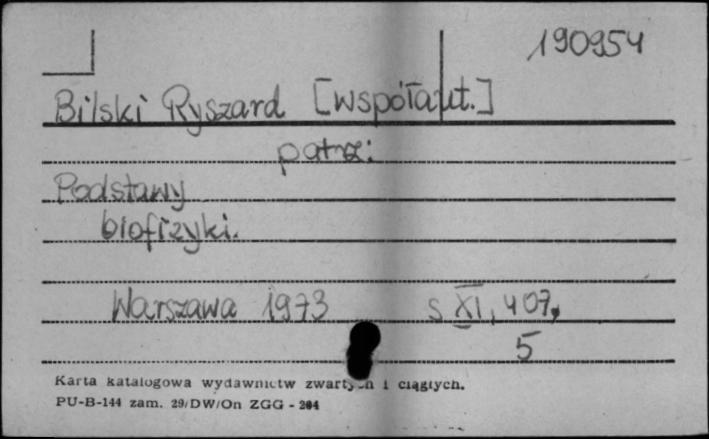 190954
Bilski Ryszard [współaut.]
patrz:
Podstawy
biofizyki.
Warszawa 1973 s XI, 407,
5
Karta katalogowa wydawnictw zwartych i ciągłych.
PU-B-144 zam. 29/DW/On ZGG - 204